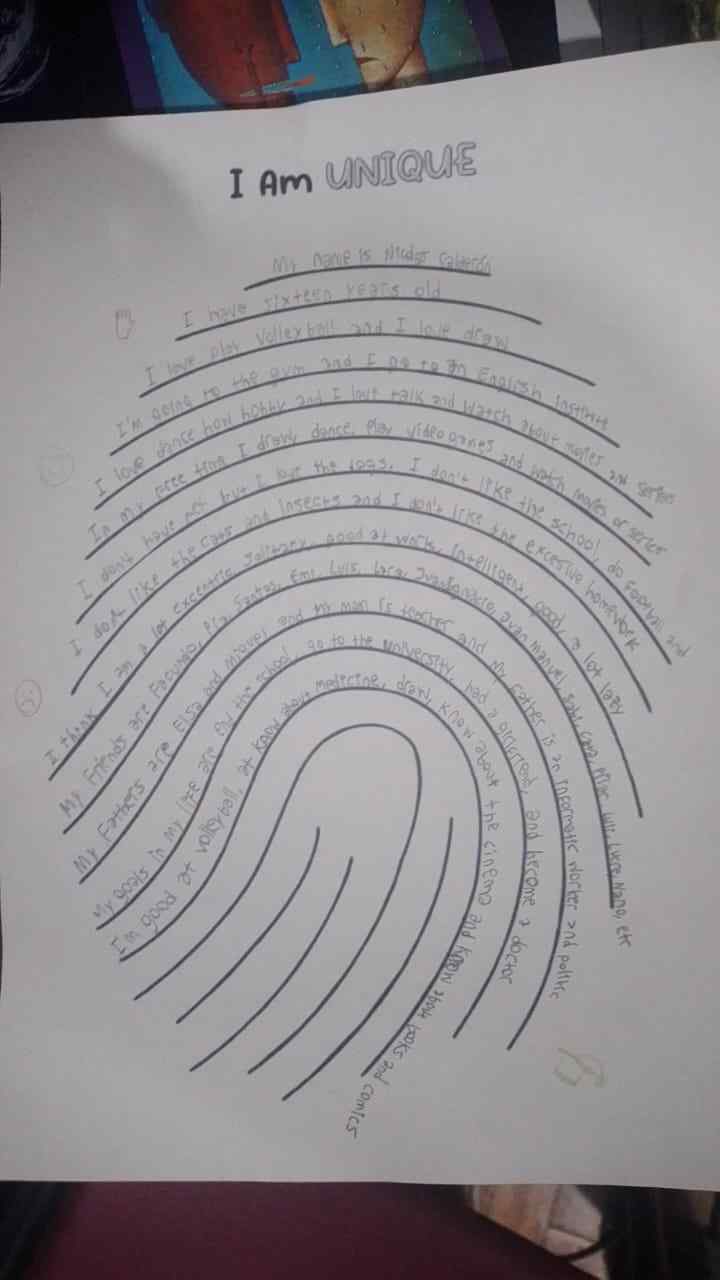 I Am UNIQUE
My name is Nicolas Calderón
I have sixteen years old
I love play Volleyball and I love draw
I'm going to the gym and I go to an English Institute
I love dance how hobby and I love talk and watch about movies and series
In my free time I draw, dance, play videogames and watch movies or series
I don't have pet but I love the dogs, I don't like the school, do football and
I don't like the cats and insects and I don't like the excesive homework
I think I am a lot excentric, solitary, good at work, intelligent, good, a lot lazy
My Friends are Facundo, Pía, Santos, Emi, Luis, Lara, Juanignacio, Juan manuel, Luli, Lucre, Nano, etc
My Fathers are Elsa and Miguel and my mam is teacher and my father is an informatic worker and politic
My goals in my life are end the school, go to the university, had a girlfriend, and become a doctor
I'm good at volleyball, at know about medicine, draw, know about the cinema and know about books and comics